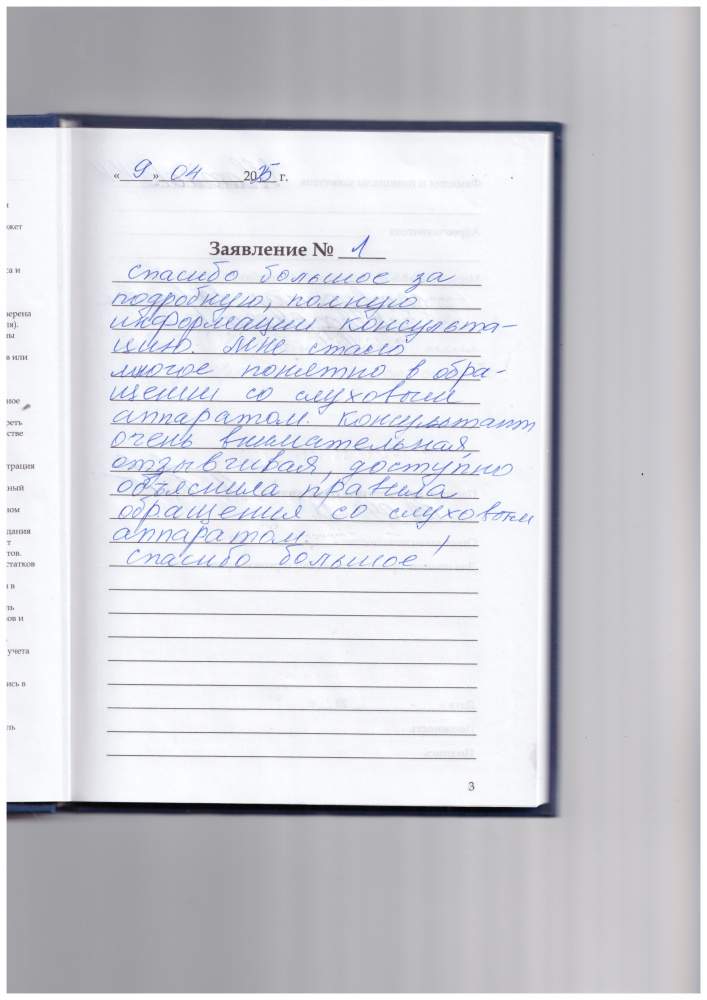 «9» 04 2025 г.
Заявление № 1
Спасибо большое за
подробную, полную
информации консульта-
цию. Мне стало
многое понятно в обра-
щении со слуховым
аппаратом. Консультант
очень внимательная,
отзывчивая, доступно
объяснила правила
обращения со слуховым
аппаратом.
Спасибо большое!
3
верена
я).
в или
стве
трация
ный
дания
тов.
статков
учета
ись в